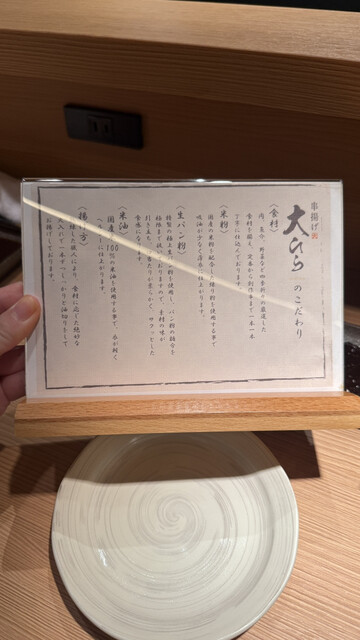 串揚げ
大ひら
のこだわり
〈食材〉
肉、魚介、野菜など四季折々の厳選した
食材を揃え、定番から創作まで一本一本
丁寧に仕込んでおります。
〈米粉〉
国産の米粉を配合した練り粉を使用する事で
吸油が少なく薄衣に仕上がります。
〈生パン粉〉
特製の極上生パン粉を使用し、パン粉の詰りを
極限まで細かくしておりますので、素材の味が
引き立ち、口当たりが柔らかく、サクッとした
食感になります。
〈米油〉
国産 100%の米油を使用する事で、衣が軽く
ヘルシーに仕上がります。
〈揚げ方〉
した職人により、食材に応じた絶妙な
入れで一本ずつしっかりと油切りをして
お揚げしております。